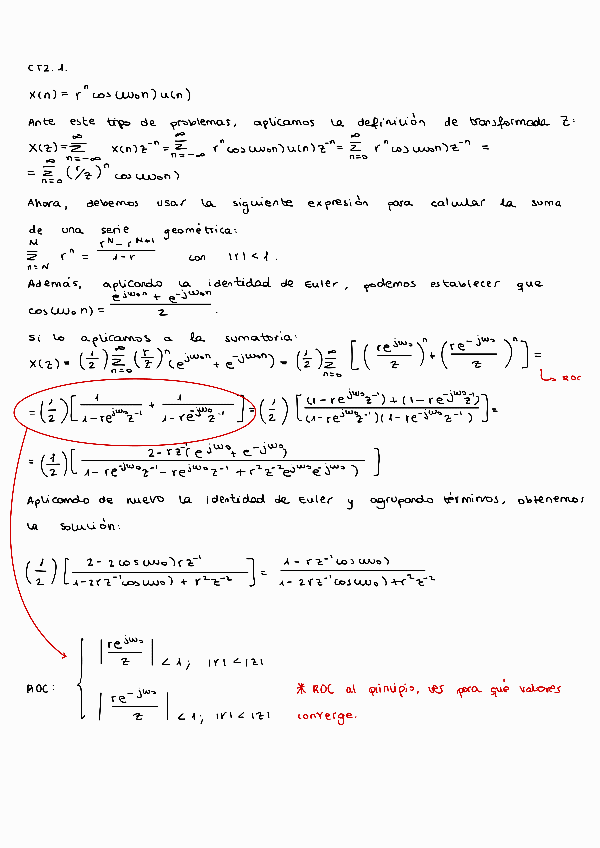 CTZ.1.
X(n) = rⁿ cos(ω₀n) u(n)
Ante este tipo de problemas, aplicamos la definición de transformada Z:
X(z) = Σ_{n=-∞}^{∞} x(n) z⁻ⁿ = Σ_{n=-∞}^{∞} rⁿ cos(ω₀n) u(n) z⁻ⁿ = Σ_{n=0}^{∞} rⁿ cos(ω₀n) z⁻ⁿ =
= Σ_{n=0}^{∞} (r/z)ⁿ cos(ω₀n)
Ahora, debemos usar la siguiente expresión para calcular la suma
de una serie geométrica:
Σ_{n=N}^{M} rⁿ = (r^N - r^{M+1})/(1-r) con |r| < 1.
Además, aplicando la identidad de Euler, podemos establecer que
cos(ω₀n) = (e^{jω₀n} + e^{-jω₀n})/2.
Si lo aplicamos a la sumatoria:
X(z) = (1/2) Σ_{n=0}^{∞} (r/z)ⁿ (e^{jω₀n} + e^{-jω₀n}) = (1/2) Σ_{n=0}^{∞} [(re^{jω₀}/z)ⁿ + (re^{-jω₀}/z)ⁿ] =
↳ ROC
= (1/2) [1/(1-re^{jω₀}z⁻¹) + 1/(1-re^{-jω₀}z⁻¹)] = (1/2) [((1-re^{jω₀}z⁻¹) + (1-re^{-jω₀}z⁻¹))/((1-re^{jω₀}z⁻¹)(1-re^{-jω₀}z⁻¹))] =
= (1/2) [(2-rz⁻¹(e^{jω₀} + e^{-jω₀}))/(1-re^{-jω₀}z⁻¹ - re^{jω₀}z⁻¹ + r²z⁻²e^{jω₀}e^{-jω₀})]
Aplicando de nuevo la identidad de Euler y agrupando términos, obtenemos
la solución:
(1/2) [(2 - 2cos(ω₀)rz⁻¹)/(1-2rz⁻¹cos(ω₀) + r²z⁻²)] = (1 - rz⁻¹cos(ω₀))/(1 - 2rz⁻¹cos(ω₀) + r²z⁻²)
|re^{jω₀}/z| < 1; |r| < |z|
ROC: {
|re^{-jω₀}/z| < 1; |r| < |z|
* ROC al principio, ves para qué valores
converge.